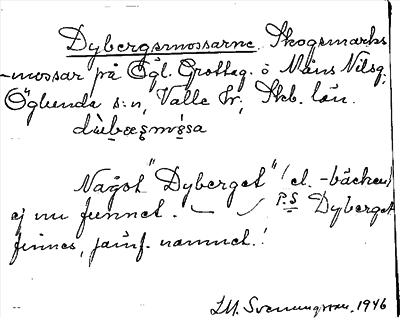 Dybergsmossarne. Skogsmarks-
-mossar på Ögl. Grottag. o Måns Nilsg.
Öglunda s:n, Valle hr., Skb. län.

Något "Dyberget" (el. -bäcken)
ej nu funnet. — P.S Dyberget
finnes, jämf. namnet!
I.M. Svenungsson, 1946